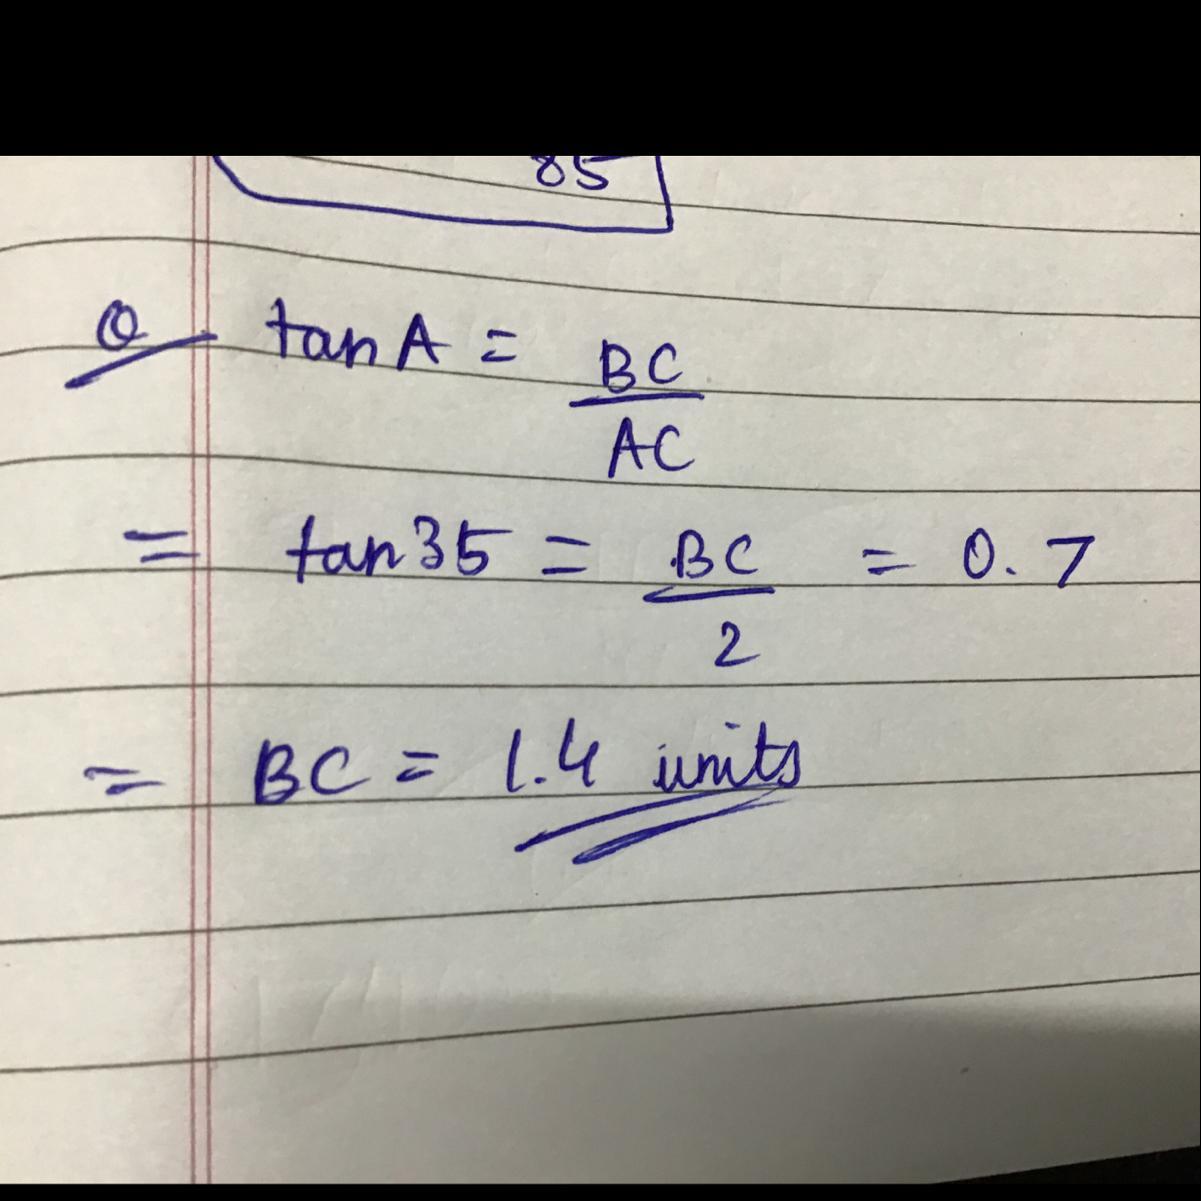 85
Q tan A = BC / AC
= tan 35 = BC / 2 = 0.7
= BC = 1.4 units